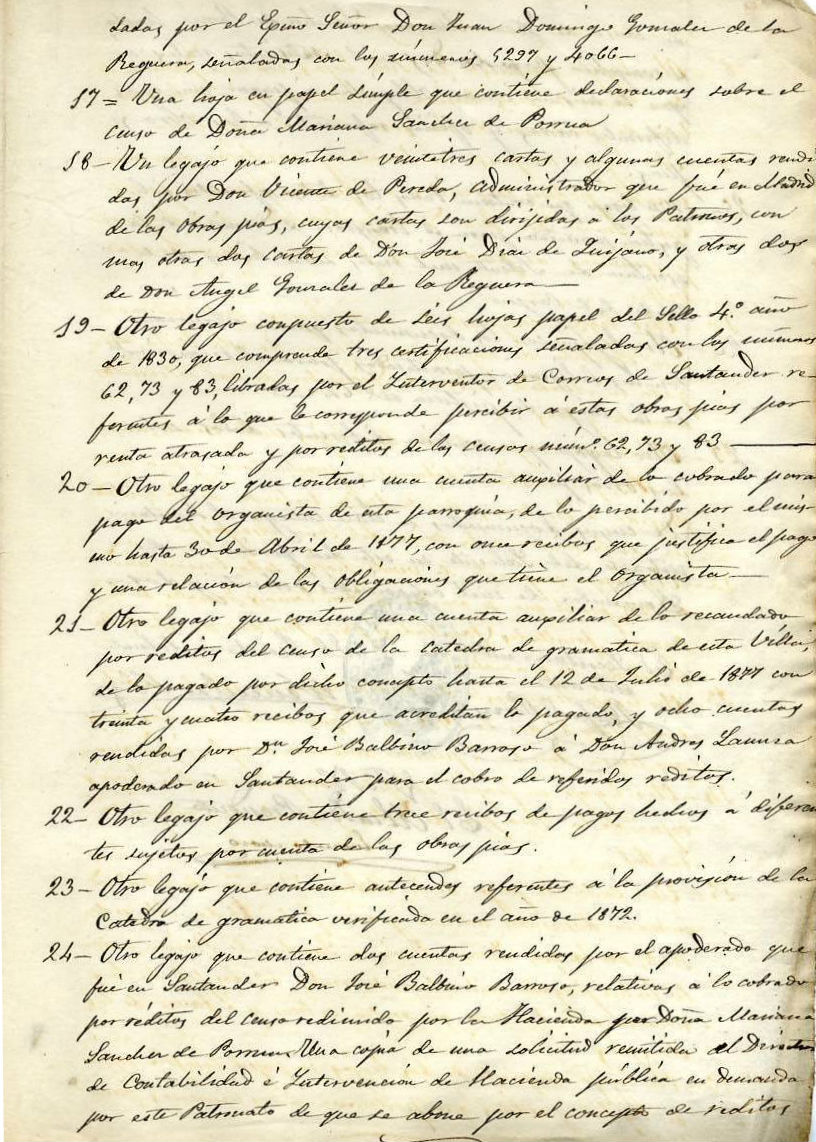 dadas por el Exmo Señor Don Juan Domingo Gonzalez de la
Reguera, señaladas con los números 5297 y 4066—
17= Una hoja en papel simple que contiene declaraciones sobre el
censo de Doña Mariana Sanchez de Porrua
18— Un legajo que contiene veintetres cartas y algunas cuentas rendi
das por Don Vicente de Pereda, administrador que fué en Madrid
de las obras pias, cuyas cartas son dirijidas á los Patronos, con
mas otras dos cartas de Don José Diaz de Quijano, y otras dos
de Don Angel Gonzalez de la Reguera—
19— Otro legajo compuesto de seis hojas papel del Sello 4.º año
de 1830, que comprende tres certificaciones señaladas con los números
62, 73 y 83, libradas por el Interventor de Correos de Santander re-
ferentes á lo que le corresponde percibir á estas obras pias por
renta atrasada y por réditos de los censos núm.º 62, 73 y 83—
20— Otro legajo que contiene una cuenta auxiliar de lo cobrado para
pago del organista de esta parroquia, de lo percibido por el mis-
mo hasta 30 de Abril de 1877, con once recibos que justifica el pago
y una relación de las obligaciones que tiene el organista—
21— Otro legajo que contiene una cuenta auxiliar de lo recaudado
por réditos del censo de la catedra de gramatica de esta Villa,
de lo pagado por dicho concepto hasta el 12 de Julio de 1877 con
treinta y cuatro recibos que acreditan lo pagado, y ocho cuentas
rendidas por Dn José Balbino Barroso á Don Andres Lamza
apoderado en Santander para el cobro de referidos réditos.
22— Otro legajo que contiene trece recibos de pagos hechos á diferen
tes sujetos por cuenta de las obras pias.
23— Otro legajo que contiene antecendes referentes á la provisión de la
Catedra de gramatica verificada en el año de 1872.
24— Otro legajo que contiene dos cuentas rendidas por el apoderado que
fué en Santander Don José Balbino Barroso, relativas á lo cobrado
por réditos del censo redimido por la Hacienda por Doña Mariana
Sanchez de Porrua. Una copia de una solicitud remitida al Director
de Contabilidad é Intervención de Hacienda pública en demanda
por este Patronato de que se abone por el concepto de reditos